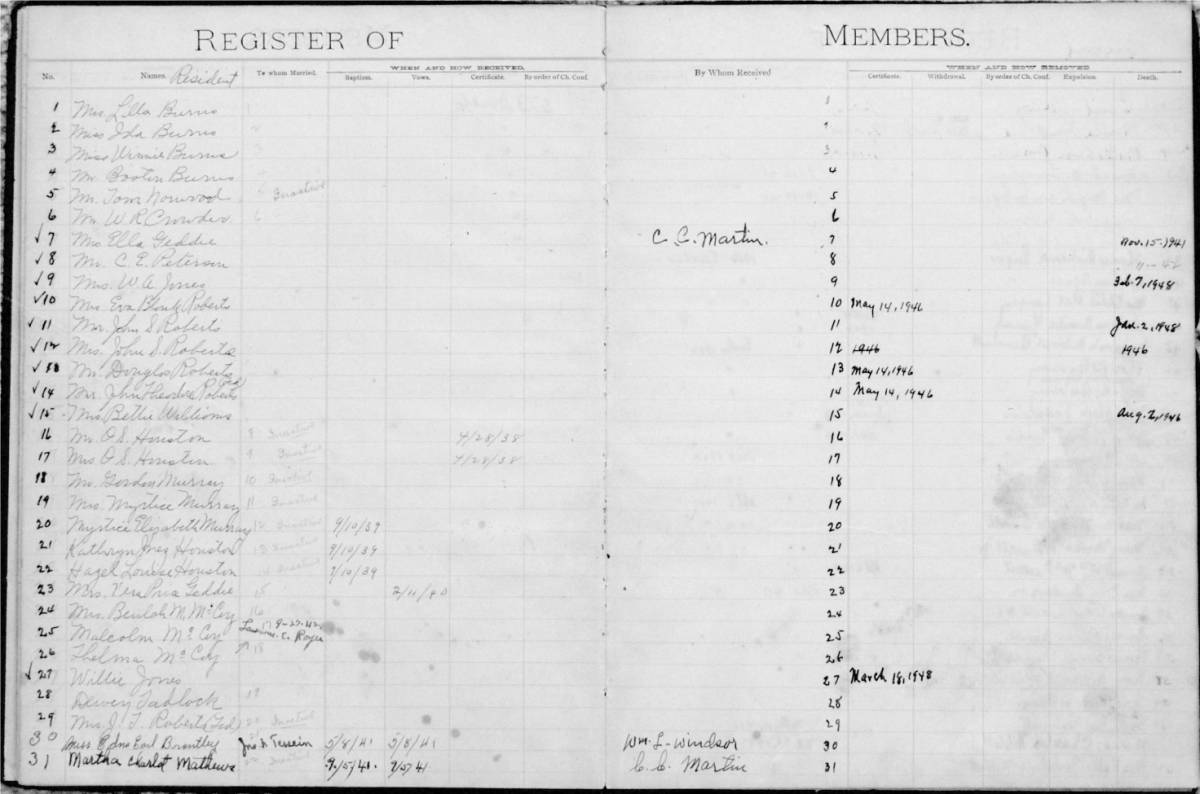 REGISTER OF MEMBERS.
No. Names. Resident To whom Married. WHEN AND HOW RECEIVED. Baptism. Vows. Certificate. By order of Ch. Conf. By Whom Received WHEN AND HOW REMOVED Certificate. Withdrawal. By order of Ch. Conf. Expulsion Death.
1 Mrs Lella Burns 1 1
2 Miss Ida Burns 2
3 Miss Winnie Burns 3 3
4 Mr. Bostin Burns 4
5 Mr. Tom Norwood Inactive 5
6 Mr W. R. Crowder 6 6
√7 Mrs Ella Geddie C. C. Martin. 7 Nov. 15-1941
√8 Mr. C. E. Peterson 8 " - 42
√9 Mrs. W. A. Jones 9 Feb. 7, 1948
√10 Mrs Eva Blink Roberts 10 May 14, 1946
√11 Mr. John S. Roberts 11 Jan. 2, 1948
√12 Mrs. John S. Roberts 12 1946 1946
√13 Mr. Douglas Roberts 13 May 14, 1946
√14 Mr. John Theodore Roberts 14 May 14, 1946
√15 Mrs Bettie Williams 15 Aug. 2, 1946
16 Mr. O. S. Houston 8 Inactive 4/28/38 16
17 Mrs O. S. Houston 9 Inactive 4/28/38 17
18 Mr. Gordon Murray 10 Inactive 18
19 Mrs. Myrtice Murray 11 Inactive 19
20 Myrtice Elizabeth Murray 12 Inactive 9/10/39 20
21 Kathryn Inez Houston 13 Inactive 9/10/39 21
22 Hazel Louise Houston 14 Inactive 9/10/39 22
23 Mrs. Vera Geddie 15 2/11/40 23
24 Mrs. Beulah M. McCoy 16 24
25 Malcolm McCoy 17 9-27-42 C. Royer 25
26 Thelma McCoy 18 26
√27 Willie Jones 27 March 18, 1948
28 Dewey Tadlock 19 28
29 Mrs. J. T. Roberts (Ted) 20 Inactive 29
30 Miss Edna Earl Brantley Jno. N. Terssein 5/8/41 5/8/41 Wm. L. Windsor 30
31 Martha Charlot Mathews Inactive 9/5/41. 9/5/41 C. C. Martin 31